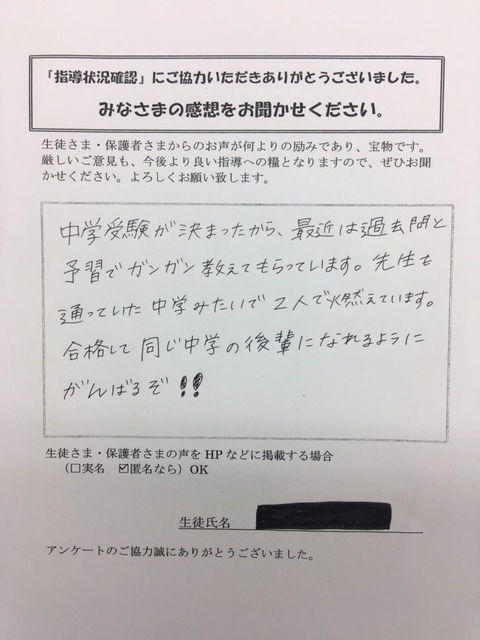 「指導状況確認」にご協力いただきありがとうございました。
みなさまの感想をお聞かせください。
生徒さま・保護者さまからのお声が何よりの励みであり、宝物です。
厳しいご意見も、今後より良い指導への糧となりますので、ぜひお聞
かせください。よろしくお願い致します。
中学受験が決まったから、最近は過去問と
予習でガンガン教えてもらっています。先生も
通っていた中学みたいで2人で燃えています。
合格して同じ中学の後輩になれるように
がんばるぞ!!
生徒さま・保護者さまの声をHPなどに掲載する場合
(□実名 ☑匿名なら)OK
生徒氏名
アンケートのご協力誠にありがとうございました。